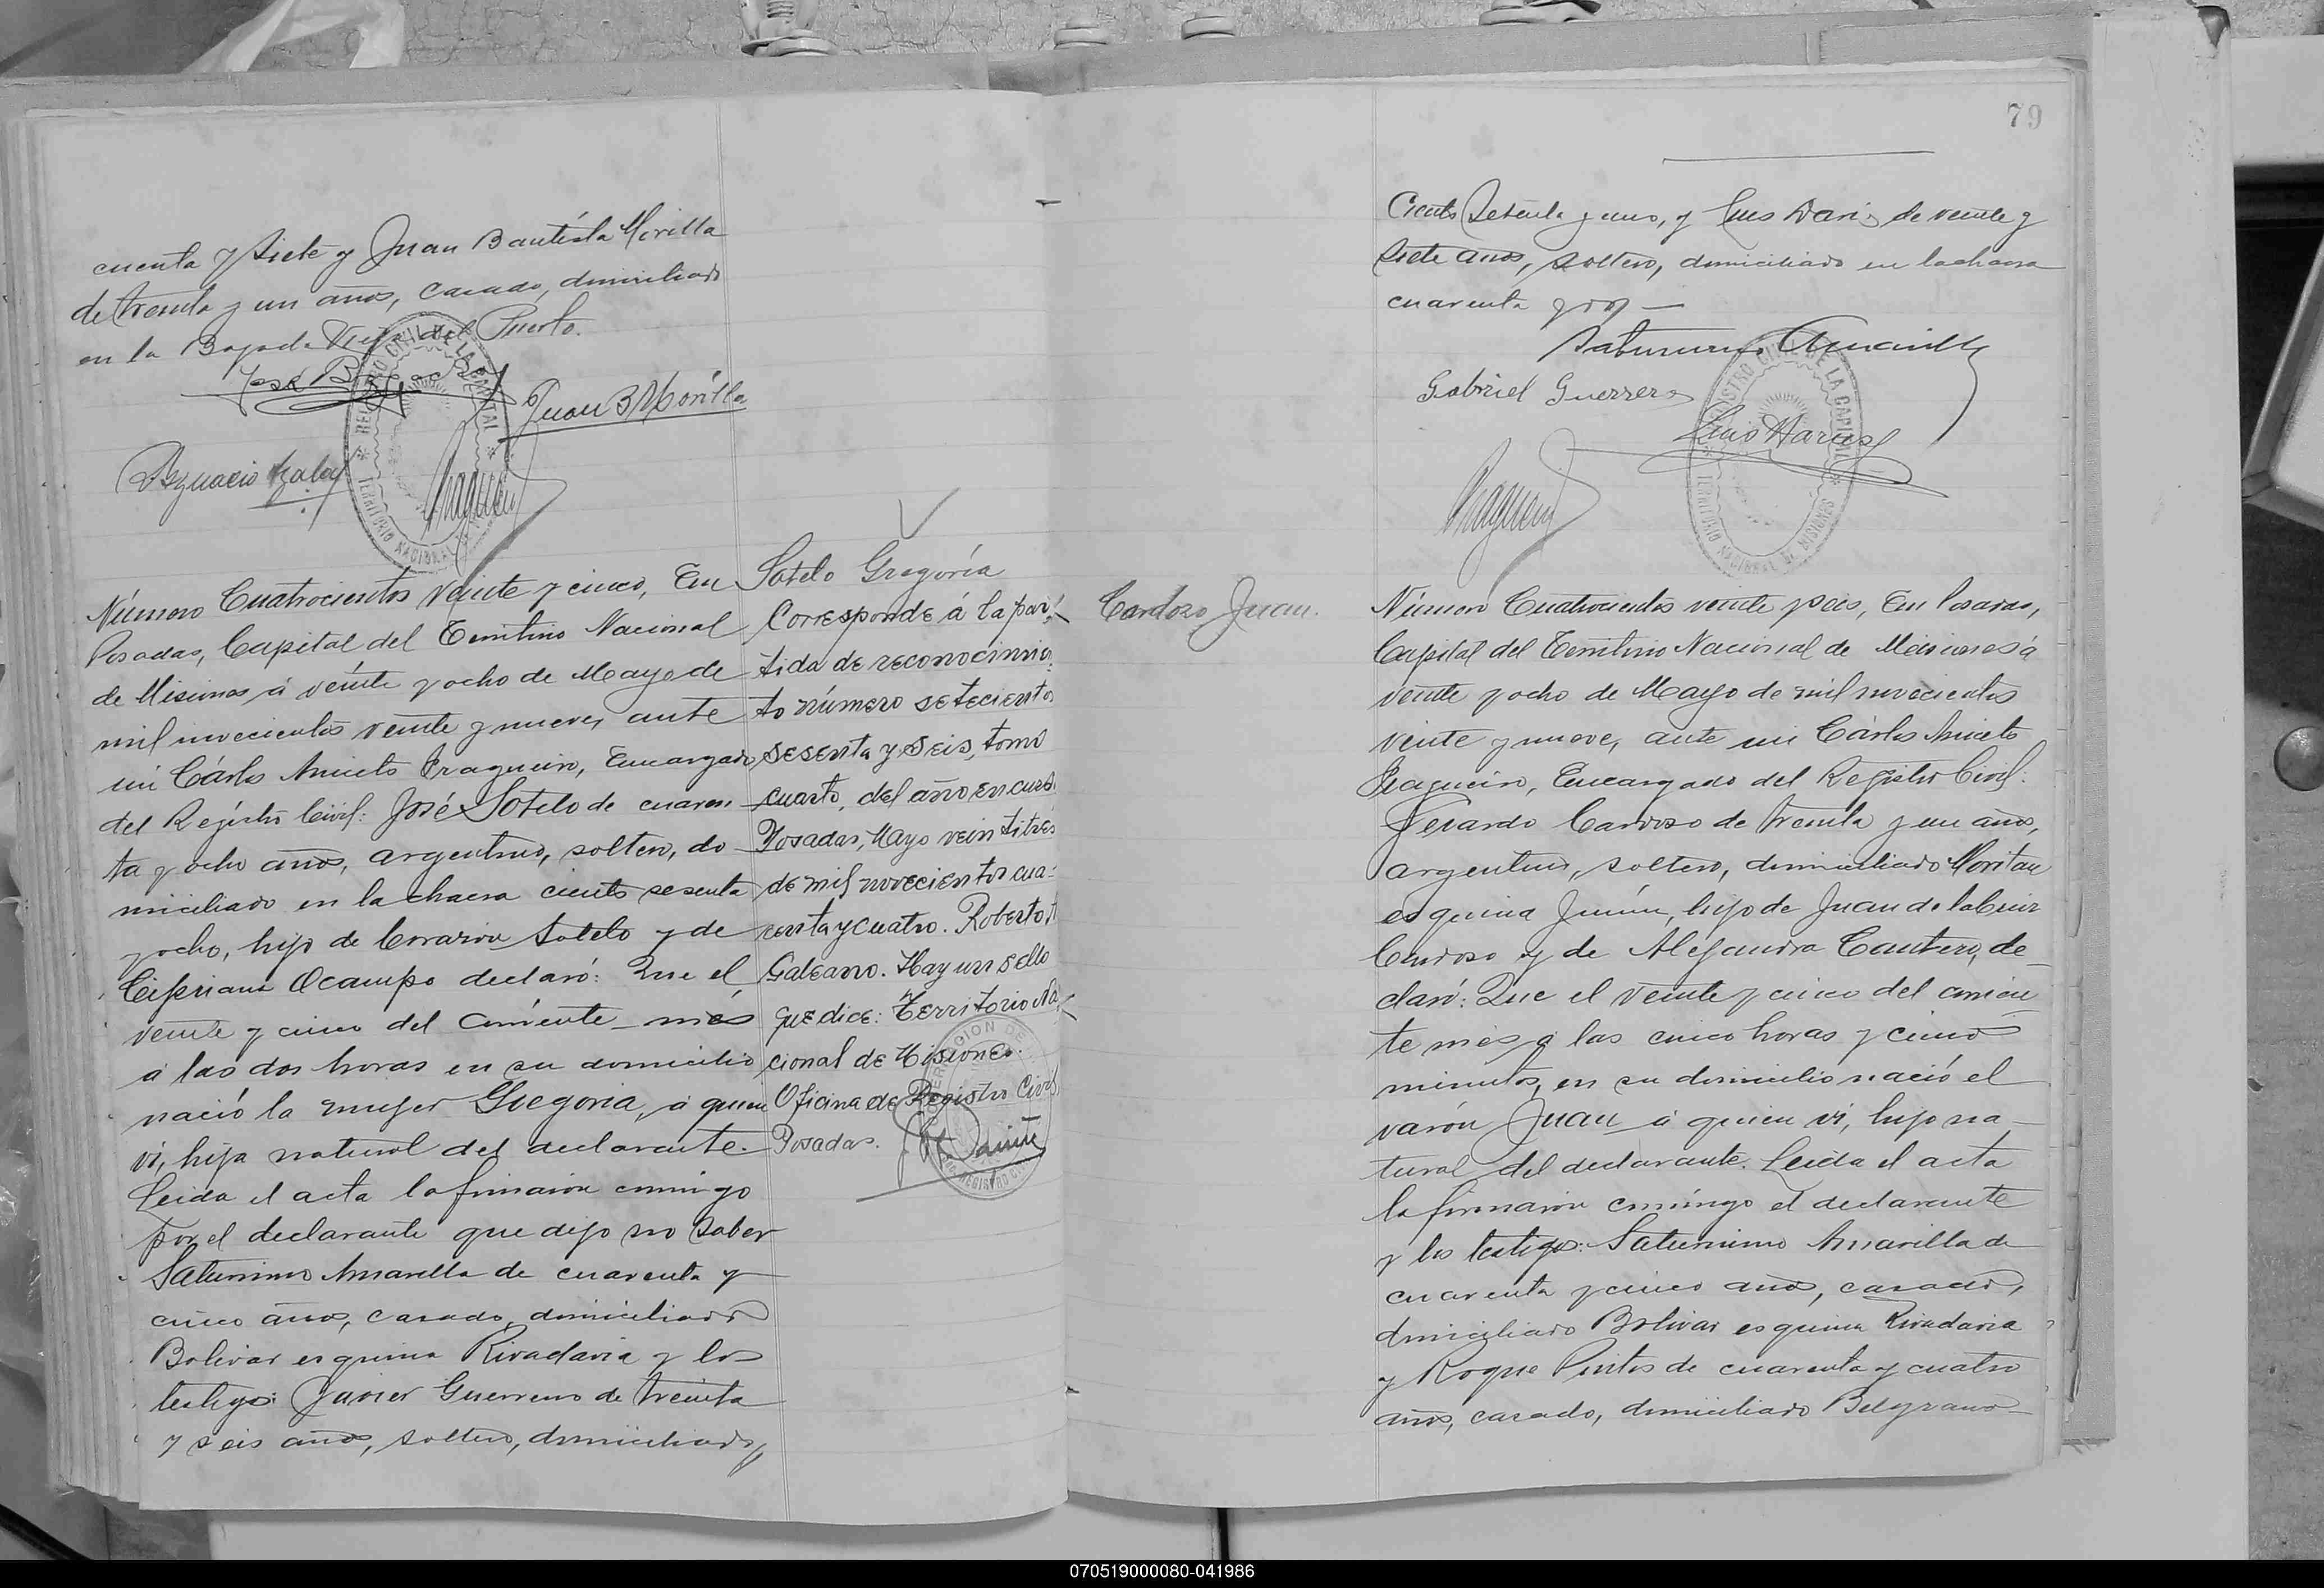 cuenta y siete y Juan Bautista Morilla
de treinta y un años, casado, domiciliado
en la Bajada Vieja del Puerto.
Juan B Morilla
REGISTRO CIVIL DE LA CAPITAL
TERRITORIO NACIONAL DE MISIONES
Número Cuatrocientos veinte y cinco, En
Posadas, Capital del Territorio Nacional
de Misiones á veinte y ocho de Mayo de
mil novecientos veinte y nueve, ante
mi Cárlos Aniceto Fragueiro, Encargado
del Registro Civil: José Sotelo de cuaren
ta y ocho años, argentino, soltero, do
miciliado en la chacra ciento sesenta
y ocho, hijo de Corazon Sotelo y de
Cipriana Ocampo declaró: Que el
veinte y cinco del corriente mes
á las dos horas en su domicilio
nació la mujer Gregoria, á quien
vi, hija natural del declarante.
Leida el acta la firmaron conmigo
por el declarante que dijo no saber
Saturnino Amarilla de cuarenta y
cinco años, casado, domiciliado
Bolivar esquina Rivadavia y los
testigos: Javier Guerrero de treinta
y seis años, soltero, domiciliado
Sotelo Gregória
Corresponde á la par-
tida de reconocimien
to número setecientos
sesenta y seis, tomo
cuarto, del año en curso.
Posadas, Mayo veintitrés
de mil novecientos cua-
renta y cuatro. Roberto
Galeano. Hay un sello
que dice: Territorio Na
cional de Misiones.
Oficina de Registro Civil
Posadas.
79
Ciento setenta y uno, y Luis Daris de veinte y
siete años, soltero, domiciliado en la chacra
cuarenta y dos —
Saturnino Amarilla
Gabriel Guerrero
REGISTRO CIVIL DE LA CAPITAL
TERRITORIO NACIONAL DE MISIONES
Cardozo Juan.
Número Cuatrocientos veinte y seis, En Posadas,
Capital del Territorio Nacional de Misiones á
veinte y ocho de Mayo de mil novecientos
veinte y nueve, ante mi Cárlos Aniceto
Fragueiro, Encargado del Registro Civil:
Gerardo Cardoso de treinta y un años,
argentino, soltero, domiciliado
esquina Junín, hijo de Juan de la Cruz
Cardoso y de Alejandra Cantero, de
claró: Que el veinte y cinco del corrien
te mes á las cinco horas y cinco
minutos, en su domicilio nació el
varón Juan á quien vi, hijo na
tural del declarante. Leida el acta
la firmaron conmigo el declarante
y los testigos: Saturnino Amarilla de
cuarenta y cinco años, casado,
domiciliado Bolivar esquina Rivadavia
y Roque Pintos de cuarenta y cuatro
años, casado, domiciliado Belgrano
070519000080-041986